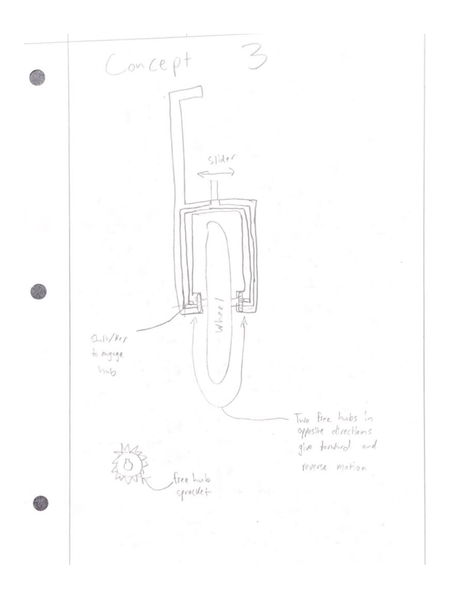 Concept 3
Slider
Wheel
to engage
hub
Two free hubs in
opposite directions
give forward and
reverse motion
free hub
sprocket